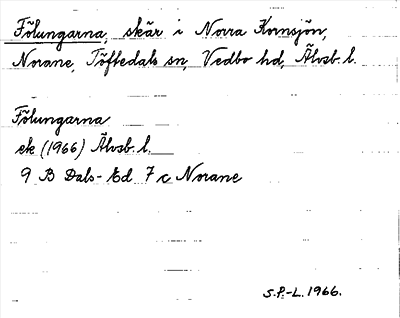 Fölungarna, skär i Norra Kornsjön,
Norane, Töftedals sn, Vedbo hd, Älvsb. l.
Fölungarna
ek (1966) Älvsb. l.
9 B Dals-Ed 7 c Norane
S.P.-L. 1966.